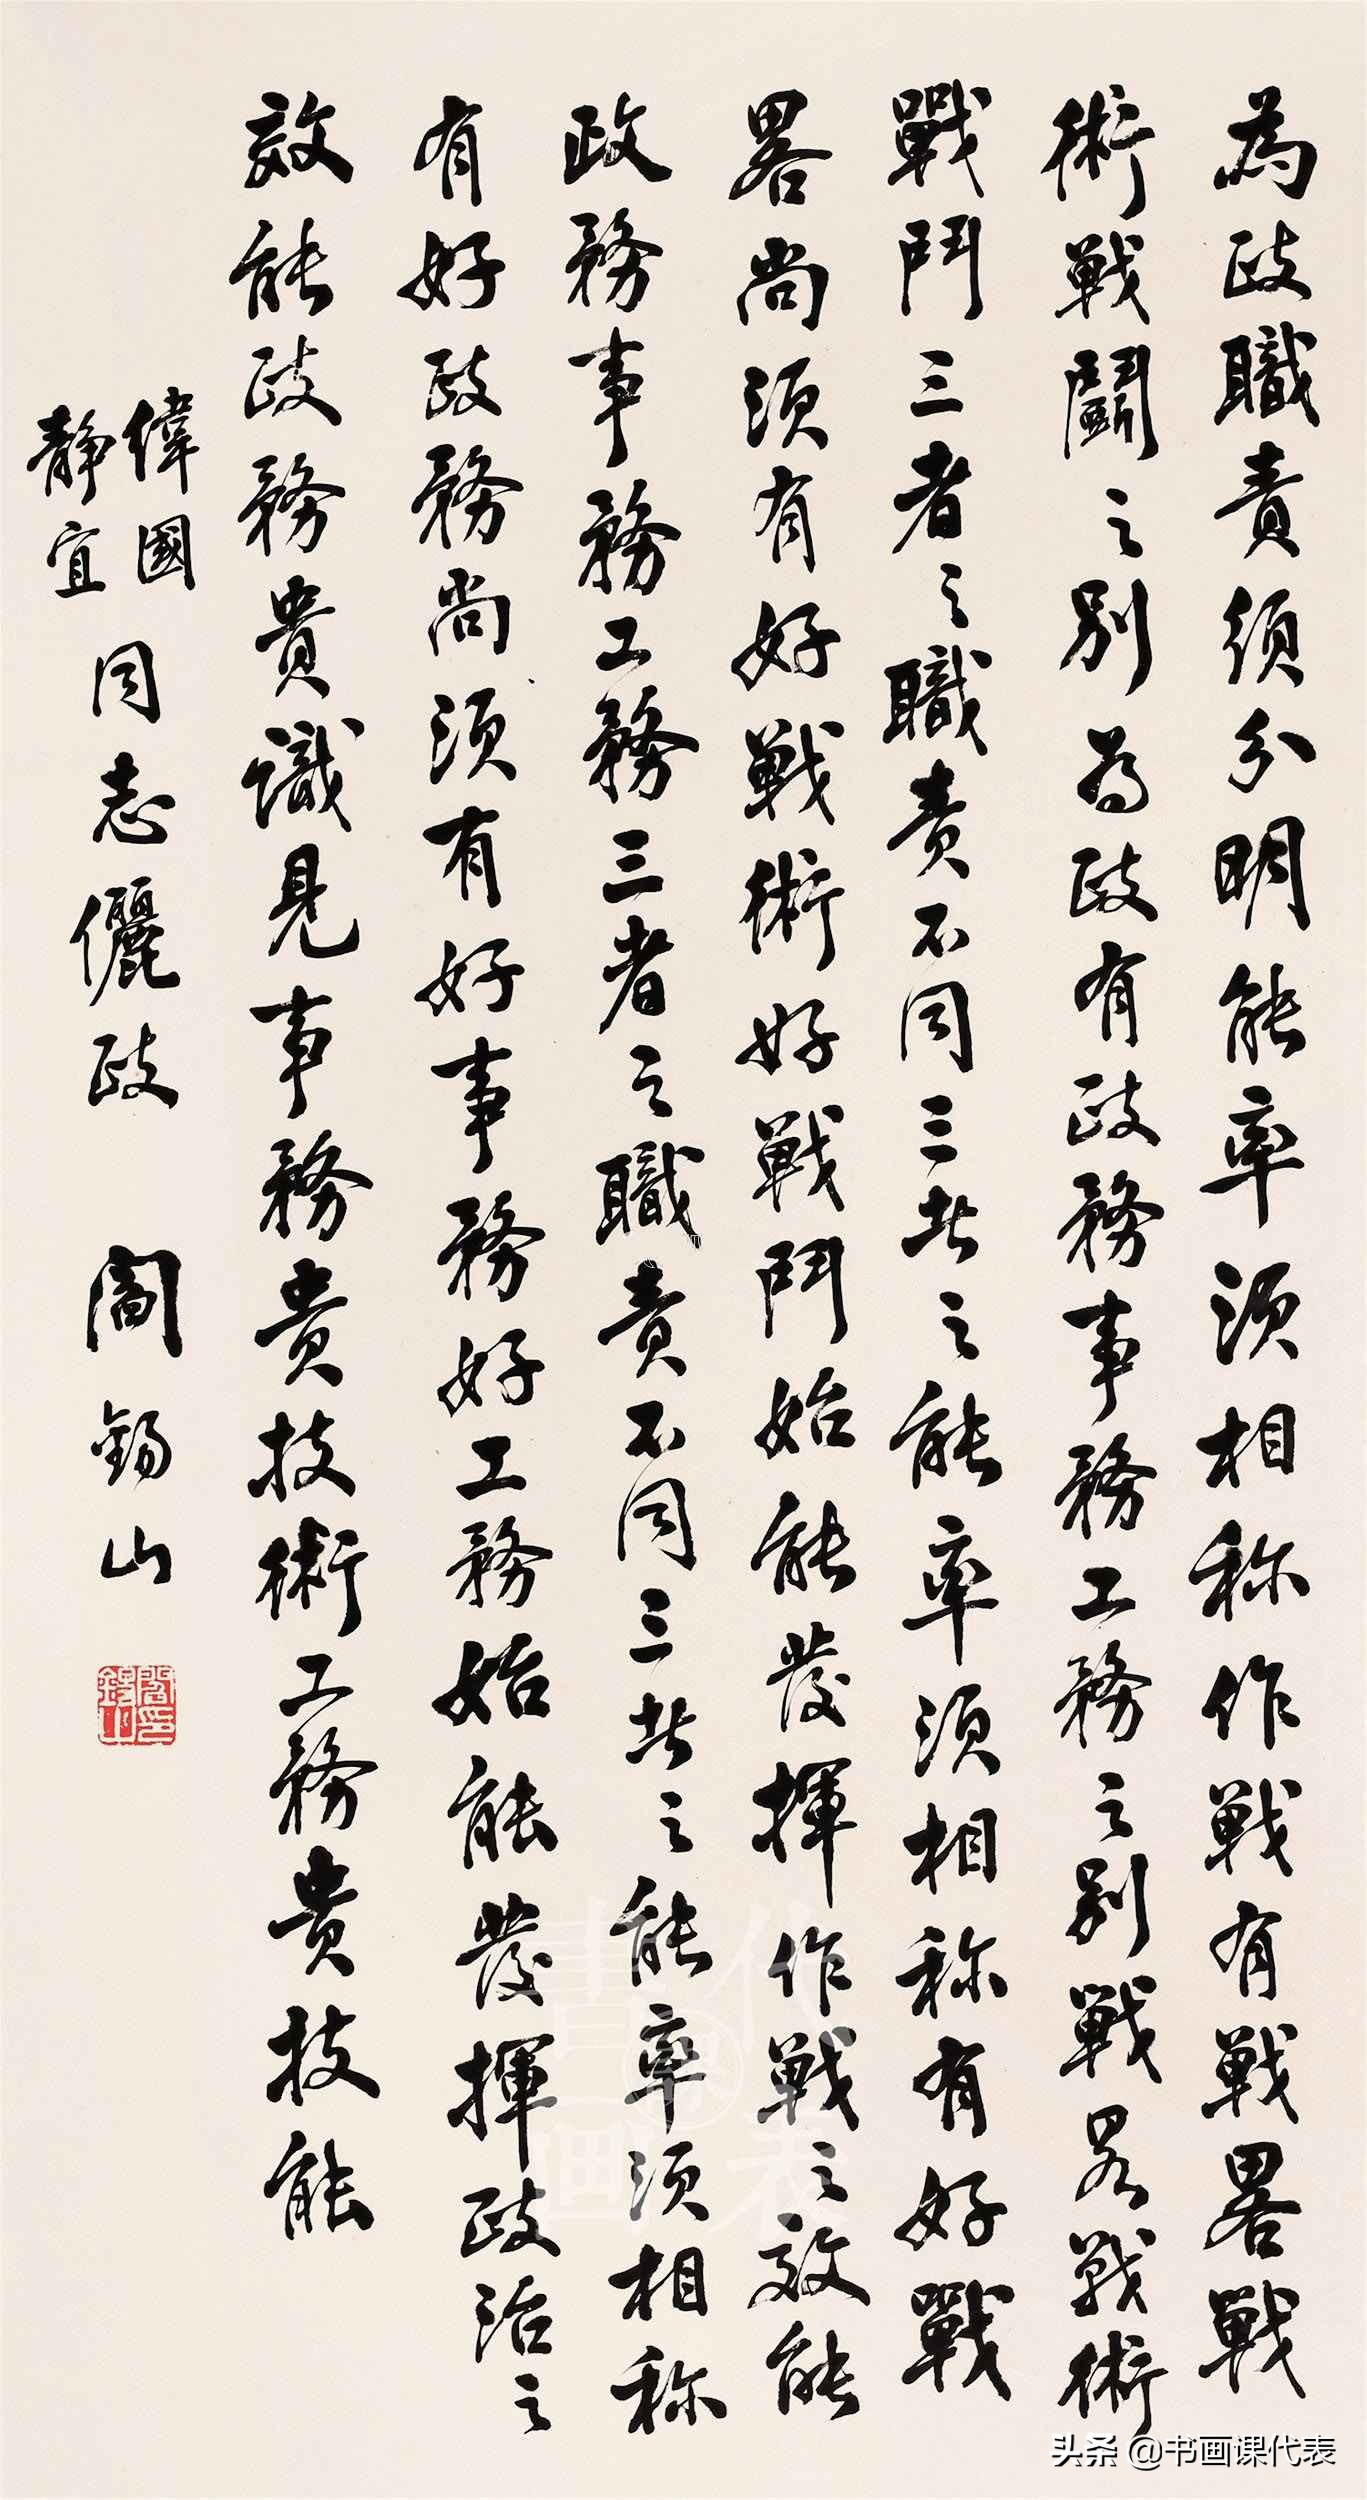 為政職責須分明能率須相称作戦有戦畧戦
術戦鬪之別為政有政務事務工務之別戦畧戦術
戰鬥三者之職責不同三者之能率須相称有好戰
畧尚須有好戦術好戦鬥始能發揮作戦之效能
政務事務工務三者之職責不同三者之能率須相称
有好政務尚須有好事務好工務始能發揮政治之
效能政務貴識見事務貴技術工務貴技能
偉國
靜宜
同志儷政
閻錫山
閻錫山印
書画
代表
头条 @书画课代表